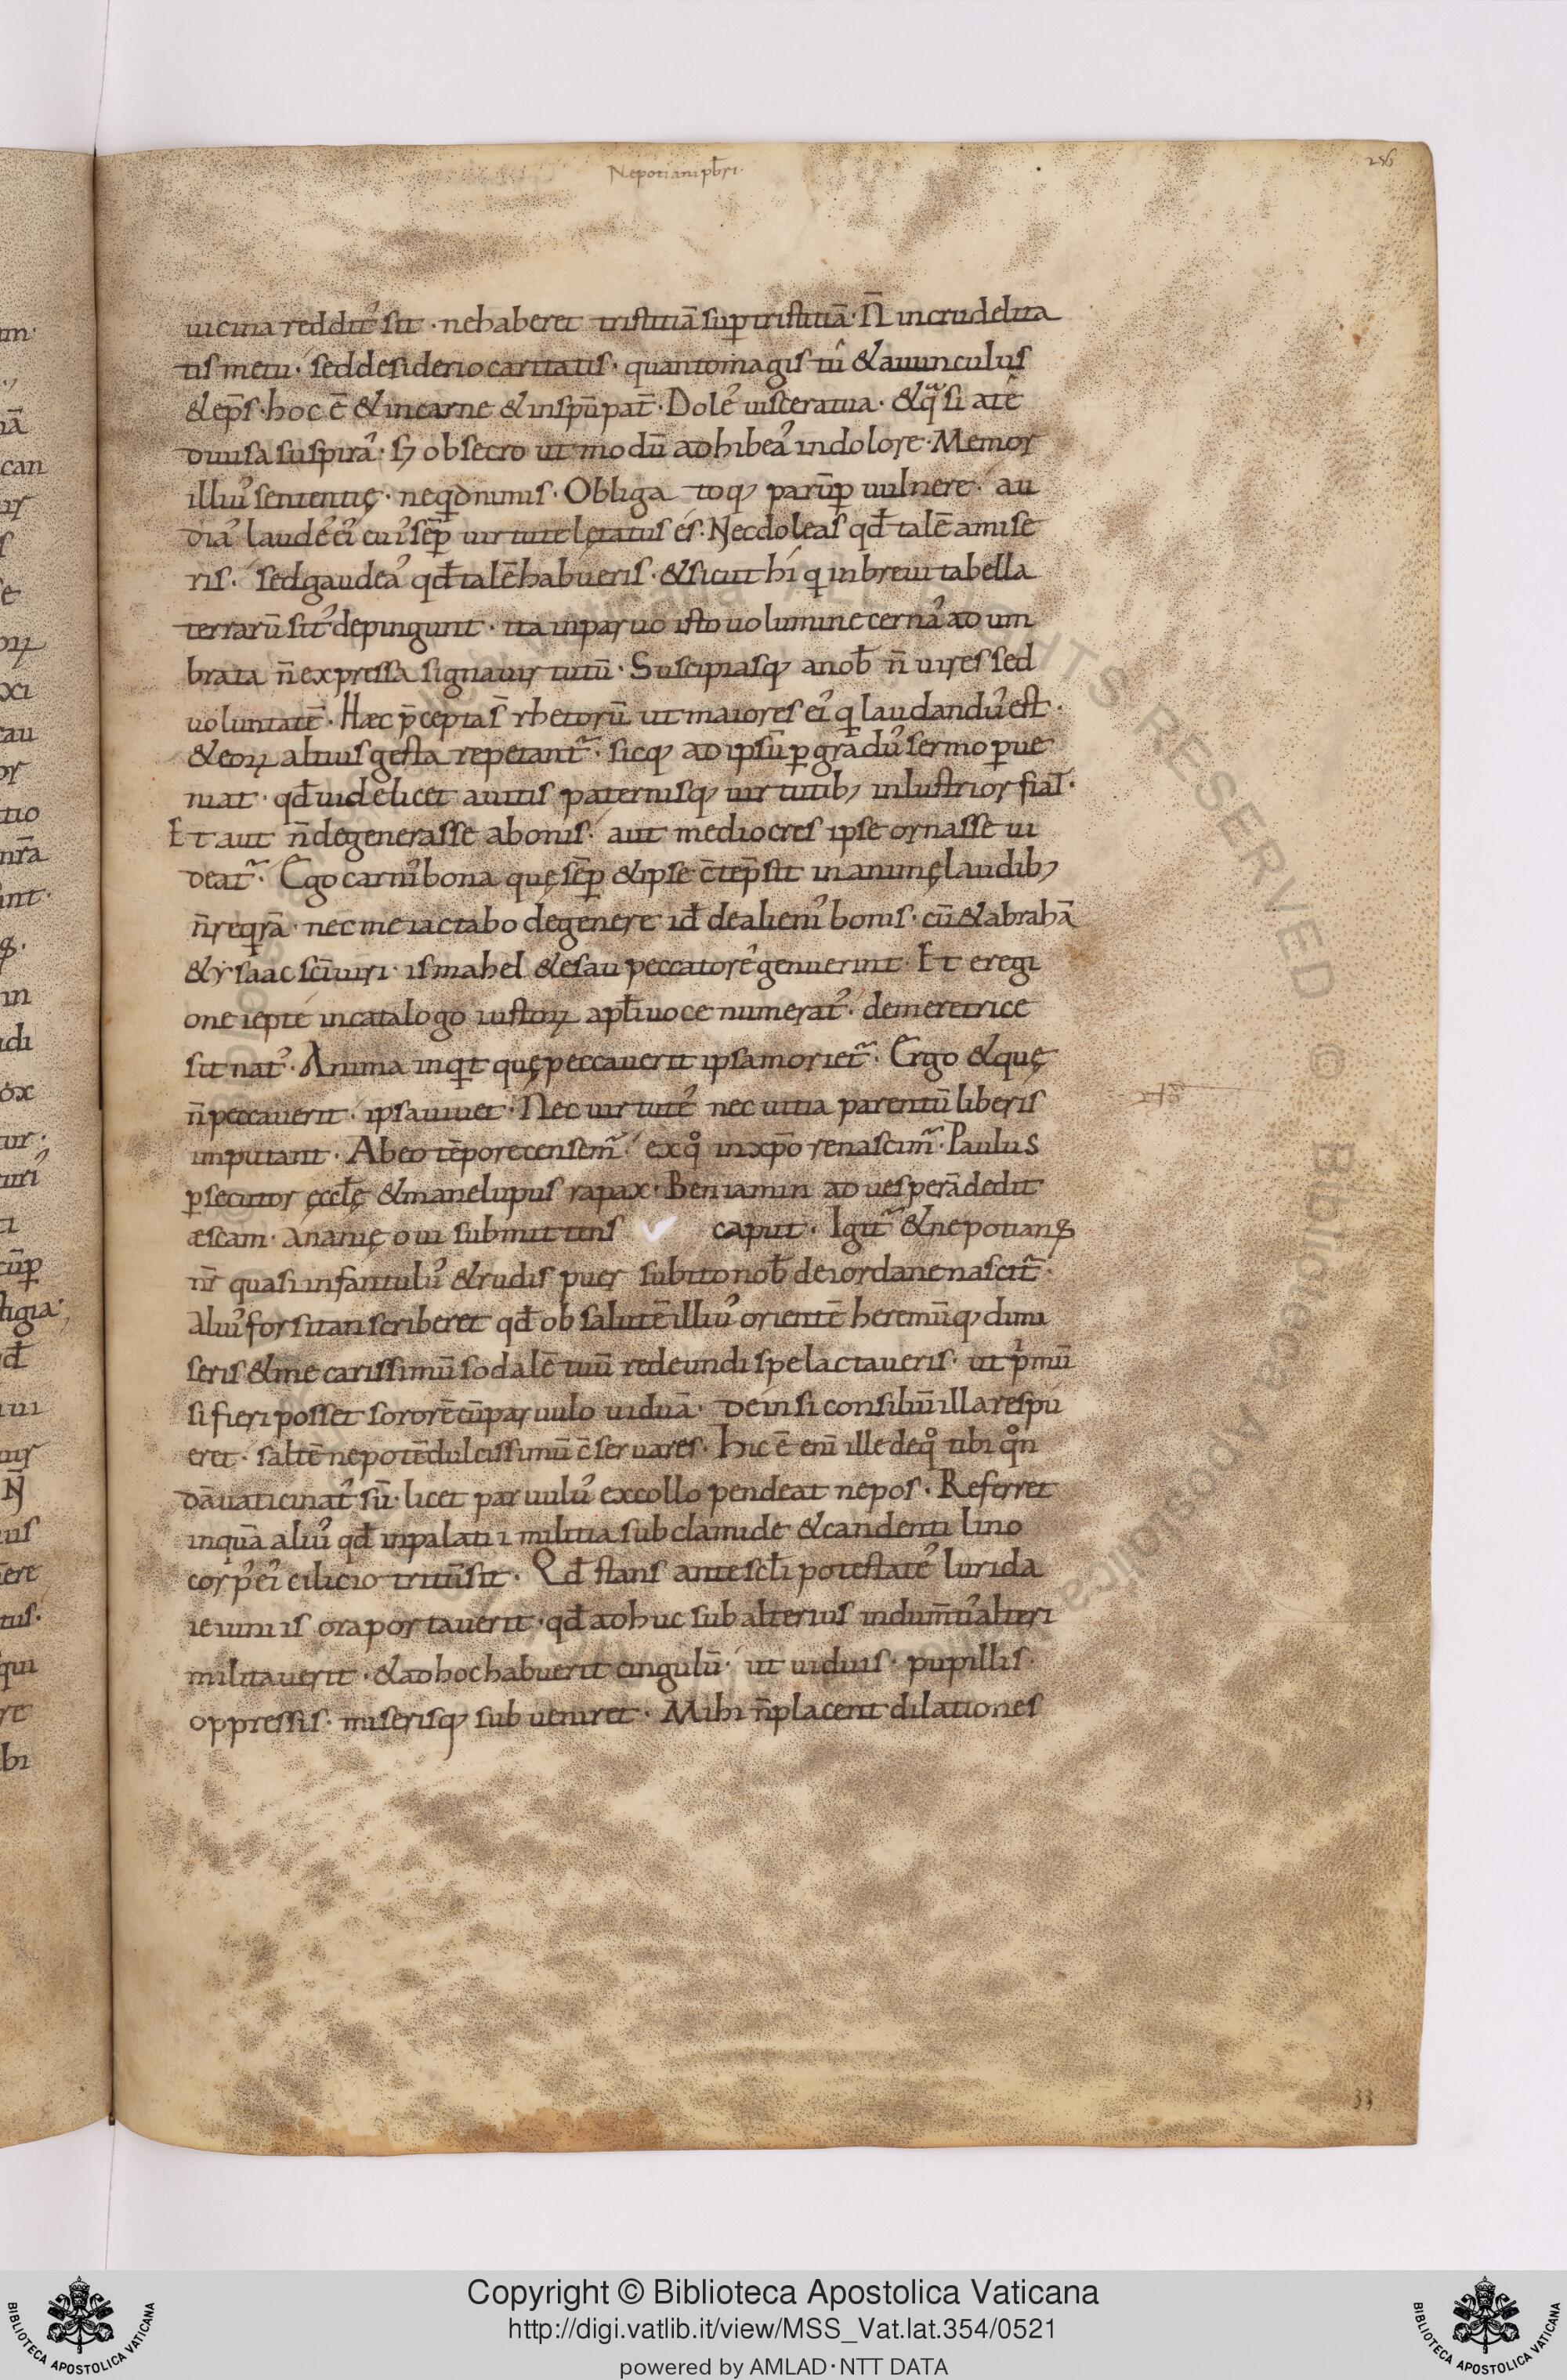 Nepotiani pb̄ri·
256
uicina redditꝰ sit · ne haberet tristitiā sup tristitiā· N̄ in crudelita
tis metu· sed desiderio caritatis · quanto magis tu & auunculus
& ep̄s· hoc ē & in carne & in sp̄u pat̄· Doleˀ uiscera tua · & q̃si a te
diuisa suspiraˀ· sꝫ obsecro ut modū adhibeaˀ in dolore· Memor
illiuˀ sententię · ne qd nimis · Obligatoqꝫ parūp uulnere· au
diaˀ laudeˀ eiˀ cuiˀ sēp uirtute lętatus es· Nec doleas qđ talē amise
ris· sed gaudeaˀ qđ talē habueris · & sicut hi q in breui tabella
terrarū situˀ depingunt · ita in paruo isto uolumine cernaˀ adum
brata n̄ expressa signa uirtutū · Suscipiasqꝫ a nob̄ n̄ uires sed
uoluntatē · Hæc p̄cepta s̄ rhetorū ut maiores eiˀ q laudanduˀ est ·
& eoꝝ altius gesta repetant᷑ · sicqꝫ ad ipsū p graduˀ sermo pue
niat · qđ uidelicet auitis paternisqꝫ uirtutibꝫ inlustrior fiat·
Et aut n̄ degenerasse a bonis· aut mediocres ipse ornasse ui
deat᷑· Ego carniˀ bona quę sēp & ipse c̄tēpsit in animę laudibꝫ
n̄ reqrā · nec me iactabo de genere id̄ de alieniˀ bonis · cū & abrahā
& ysaac sc̄i uiri · ismahel & esau peccatoreˀ genuerint · Et e regi
one iepte in catalogo iustoꝝ apłi uoce numeratˀ· de meretrice
sit natˀ· Anima inqt quę peccauerit ipsa moriet᷑ · Ergo & quę
n̄ peccauerit· ipsa uiuet· Nec uirtuteˀ nec uitia parentū liberis
imputant · Ab eo tēpore censem᷑ · ex qͦ in xp̄o renascim᷑· Paulus
psecutor ęccłę & mane lupus rapax· Beniamin ad uesperā dedit
æscam· ananię oui submittens caput · Igit᷑ & nepotianꝰ
nr̄ quasi infantuluˀ & rudis puer subito nob̄ de iordane nascit᷑·
Aliuˀ forsitan scriberet qđ ob salutē illiuˀ orientē heremūqꝫ dimi
seris & me carissimū sodalē tuū redeundi spe lactaueris· ut p̄mū
si fieri posset sororē cū paruulo uiduā · dein si consiliū illa respu
eret · saltē nepotē dulcissimū c̄seruares· Hic ē eni ille de qͦ tibi qͦn
dā uaticinatˀ sū· licet paruuluˀ ex collo pendeat nepos · Referret
inquā aliuˀ qđ in palatii militia sub clamide & candenti lino
corpˀ eiˀ cilicio tritū sit · Qđ stans ante sc̄łi potestateˀ lurida
ieiuniis ora portauerit · qđ adhuc sub alterius indum̄tiˀ alteri
militauerit · & ad hoc habuerit cingulū · ut uiduis · pupillis ·
oppressis · miserisqꝫ subueniret · Mihi n̄ placent dilationes
33
Copyright © Biblioteca Apostolica Vaticana
http://digi.vatlib.it/view/MSS_Vat.lat.354/0521
powered by AMLAD·NTT DATA